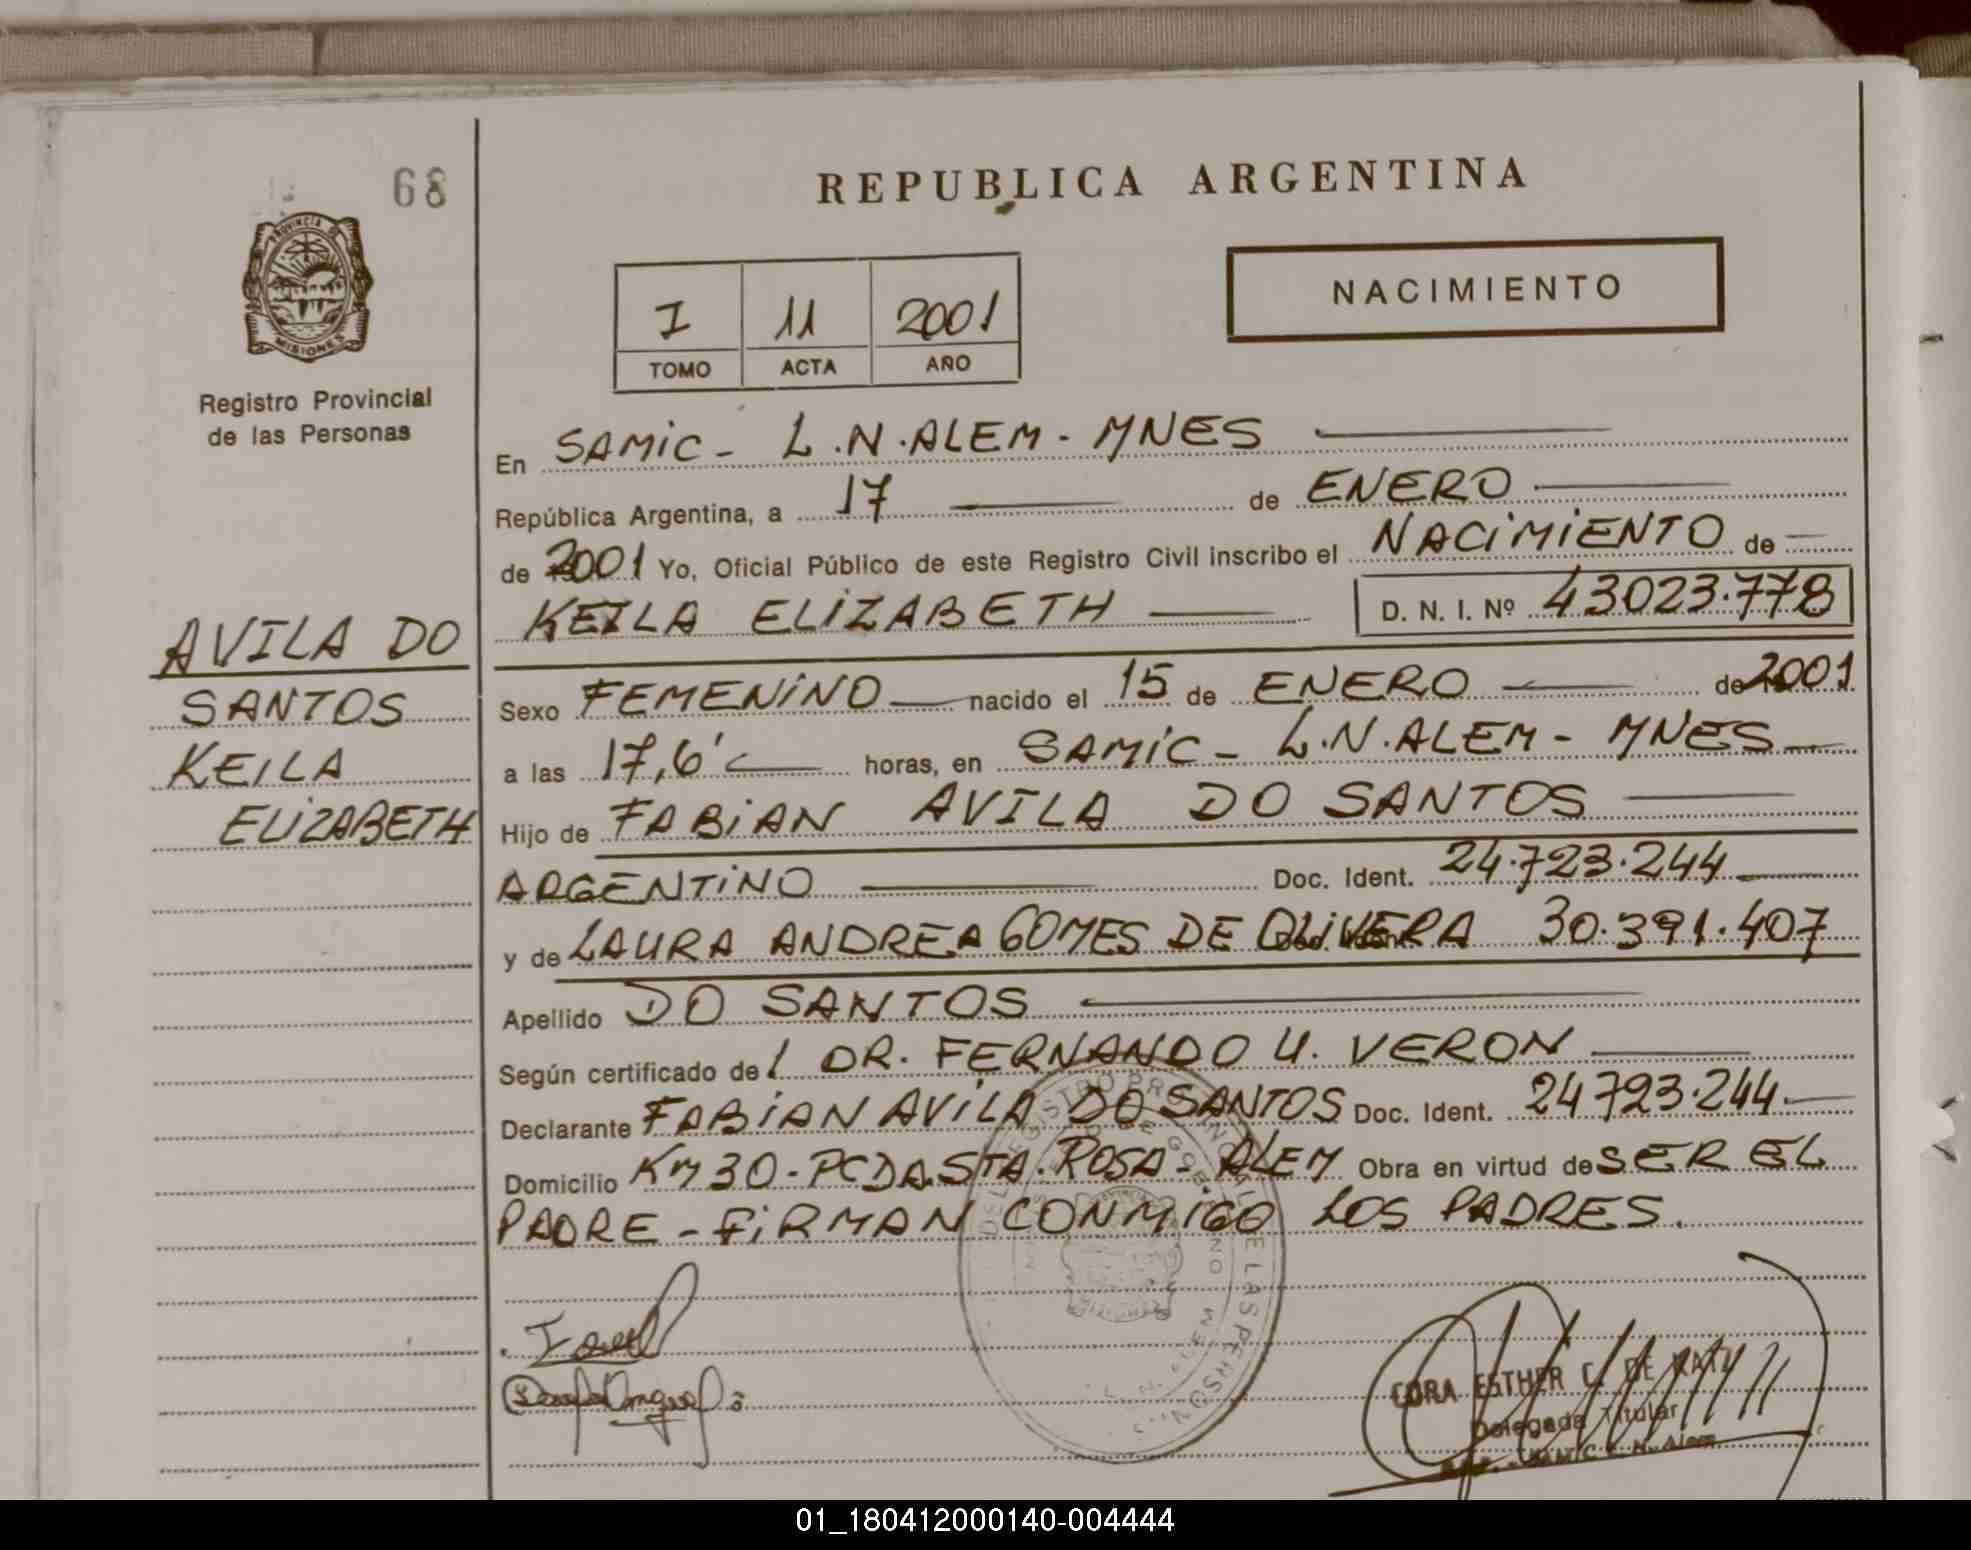 68
PROVINCIA DE
MISIONES
Registro Provincial
de las Personas
AVILA DO
SANTOS
KEILA
ELIZABETH
REPUBLICA ARGENTINA
I 11 2001
TOMO ACTA AÑO
NACIMIENTO
En SAMIC - L.N.ALEM - MNES
República Argentina, a 17 de ENERO
de 2001 Yo, Oficial Público de este Registro Civil inscribo el NACIMIENTO de
KEILA ELIZABETH D. N. I. Nº 43023.778
Sexo FEMENINO nacido el 15 de ENERO de 2001
a las 17,6' horas, en SAMIC - L.N.ALEM - MNES
Hijo de FABIAN AVILA DO SANTOS
ARGENTINO Doc. Ident. 24.723.244
y de LAURA ANDREA GOMES DE OLIVERA 30.391.407
Apellido DO SANTOS
Según certificado del DR. FERNANDO U. VERON
Declarante FABIAN AVILA DO SANTOS Doc. Ident. 24723.244
Domicilio KM 30 - PCDA.STA.ROSA - ALEM Obra en virtud de SER EL
PADRE - FIRMAN CONMIGO LOS PADRES.
CORA ESTHER C. DE
Delegada Titular
L. N. Alem
01_180412000140-004444